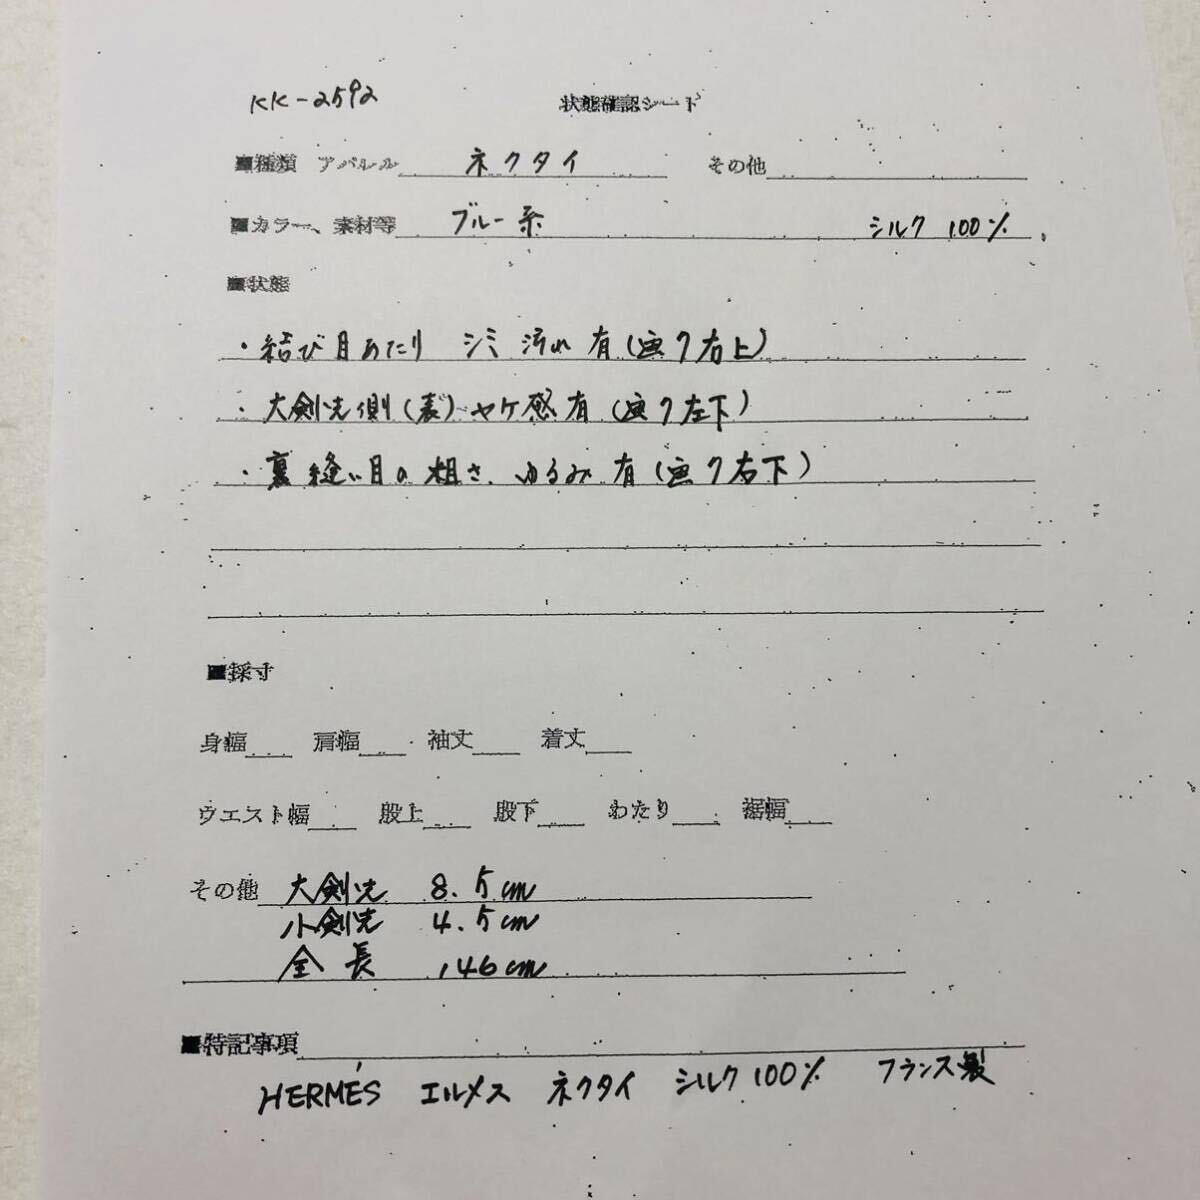 KK-2592 状態確認シート
■種類 アパレル ネクタイ その他
■カラー、素材等 ブルー系 シルク 100%
■状態
・結び目あたり シミ 汚れ 有(画7右上)
・大剣先側(表)ヤケ感有(画7左下)
・裏 縫い目の粗さ、ゆるみ 有(画7右下)
■採寸
身幅 肩幅 袖丈 着丈
ウエスト幅 股上 股下 わたり 裾幅
その他 大剣先 8.5cm
小剣先 4.5cm
全長 146cm
■特記事項
HERMÉS エルメス ネクタイ シルク100% フランス製